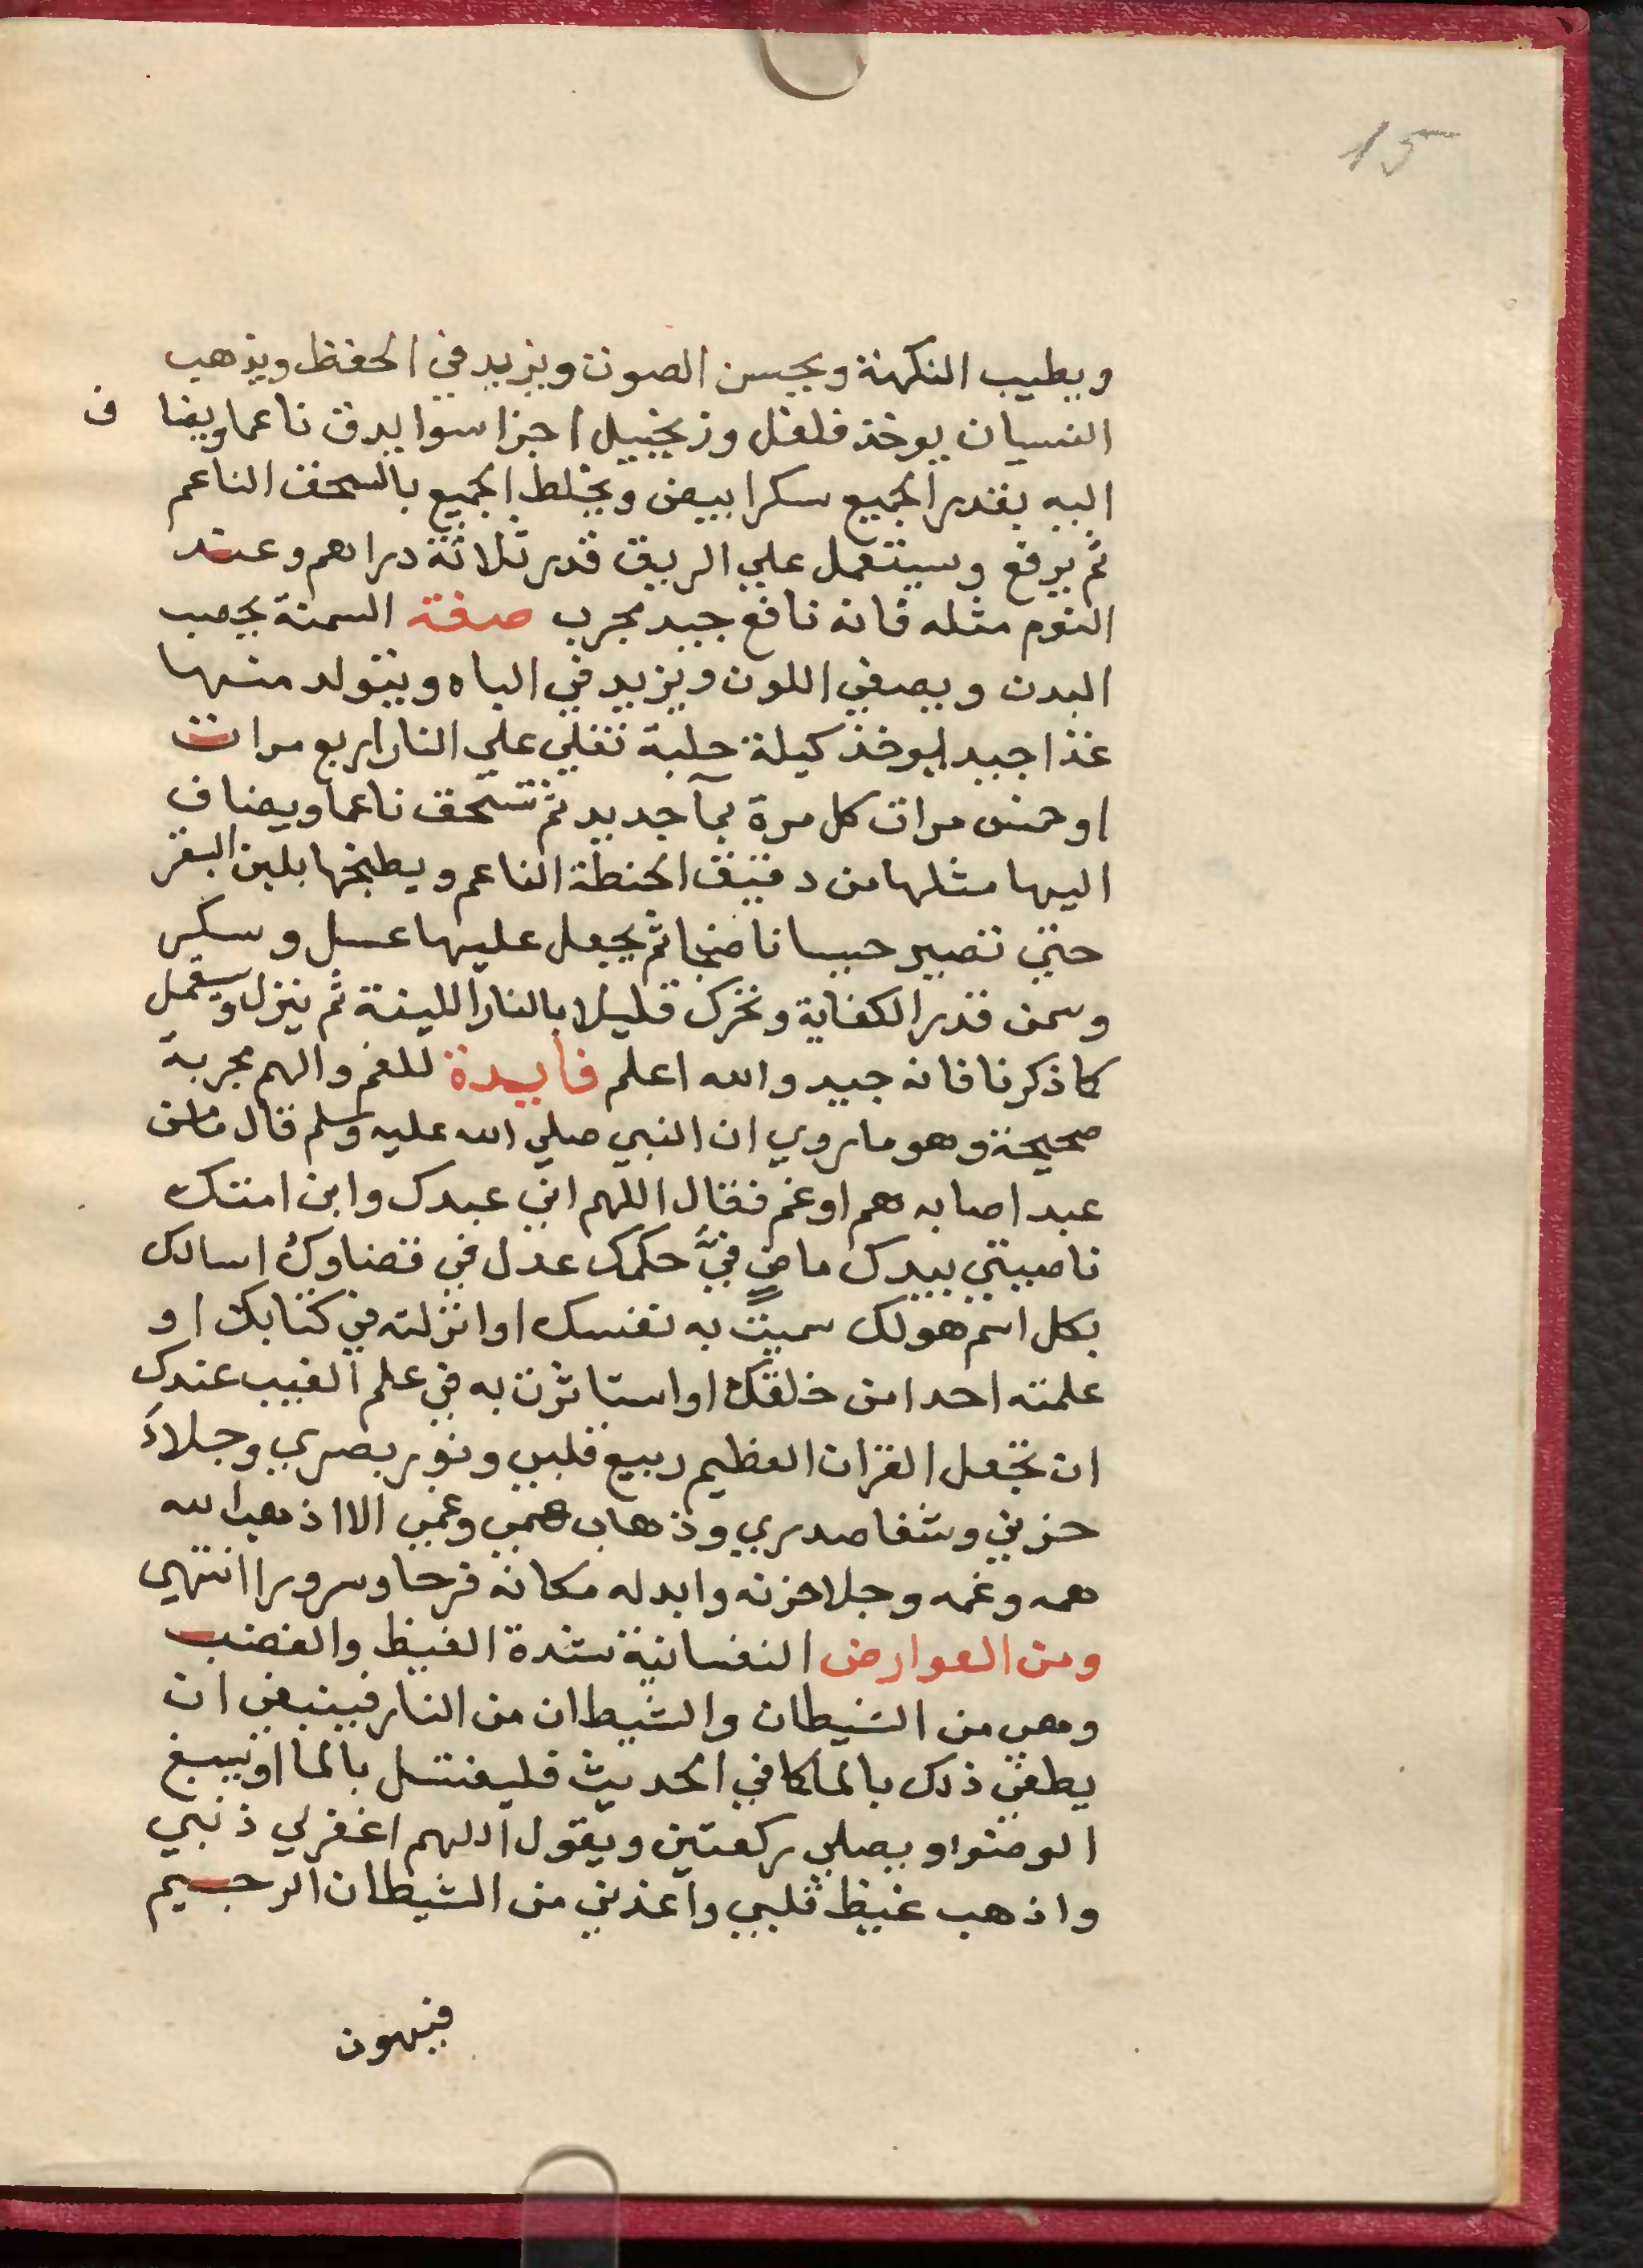 15
ويطيب النكهة ويحسن الصوت ويزيد في الحفظ ويذهب
النسيان يوخذ فلفل وزنجبيل اجزا سوا يدق ناعما ويضا ف
اليه بقدر الجميع سكرا بيض ويخلط الجميع بالسحق الناعم
ثم يرفع وسيتعمل علي الريق قدر ثلاثة دراهم وعند
النوم مثله فانه نافع جيد مجرب صفة السمنة يخصب
البدن ويصفي اللون ويزيد في الباه ويتولد منها
غذا جيد يوخذ كيلة حلبة تغلي علي النار اربع مرات
او خمس مرات كل مرة بمآ جديد ثم تسحق ناعما ويضاف
اليها مثلها من دقيق الحنطة الناعم ويطبخها بلبن البقر
حتي تصير حسا ناضجا ثم يجعل عليها عسل وسكر
وسمن قدر الكفاية وتحرك قليلا بالنار اللينة ثم ينزل ويستعمل
كما ذكرنا فانه جيد والله اعلم فايدة للغم والهم مجربة
صحيحة وهو ما روي ان النبي صلي الله عليه وسلم قال مامن
عبد اصابه هم او غم فقال اللهم اني عبدك وابن امتك
ناصيتي بيدك ماضٍ فيَّ حكمك عدل في قضاوك اسالك
بكل اسم هولك سميت به نفسك او انزلته في كتابك او
علمته احدا من خلقك او استاثرت به في علم الغيب عندك
ان تجعل القران العظيم ربيع قلبي ونور بصري وجلآء
حزني وشفا صدري وذهاب همي وغمي الا اذهب الله
همه وغمه وجلا حزنه وابدله مكانه فرحا وسرورا انتهي
ومن العوارض النفسانية شدة الغيظ والغضب
وهي من الشيطان والشيطان من النار فينبغي ان
يطفي ذلك بالما كما في الحديث فليغتسل بالما او يسبغ
الوضو او يصلي ركعتين ويقول اللهم اغفرلي ذنبي
واذهب غيظ قلبي واعذني من الشيطان الرجيم
فيهون